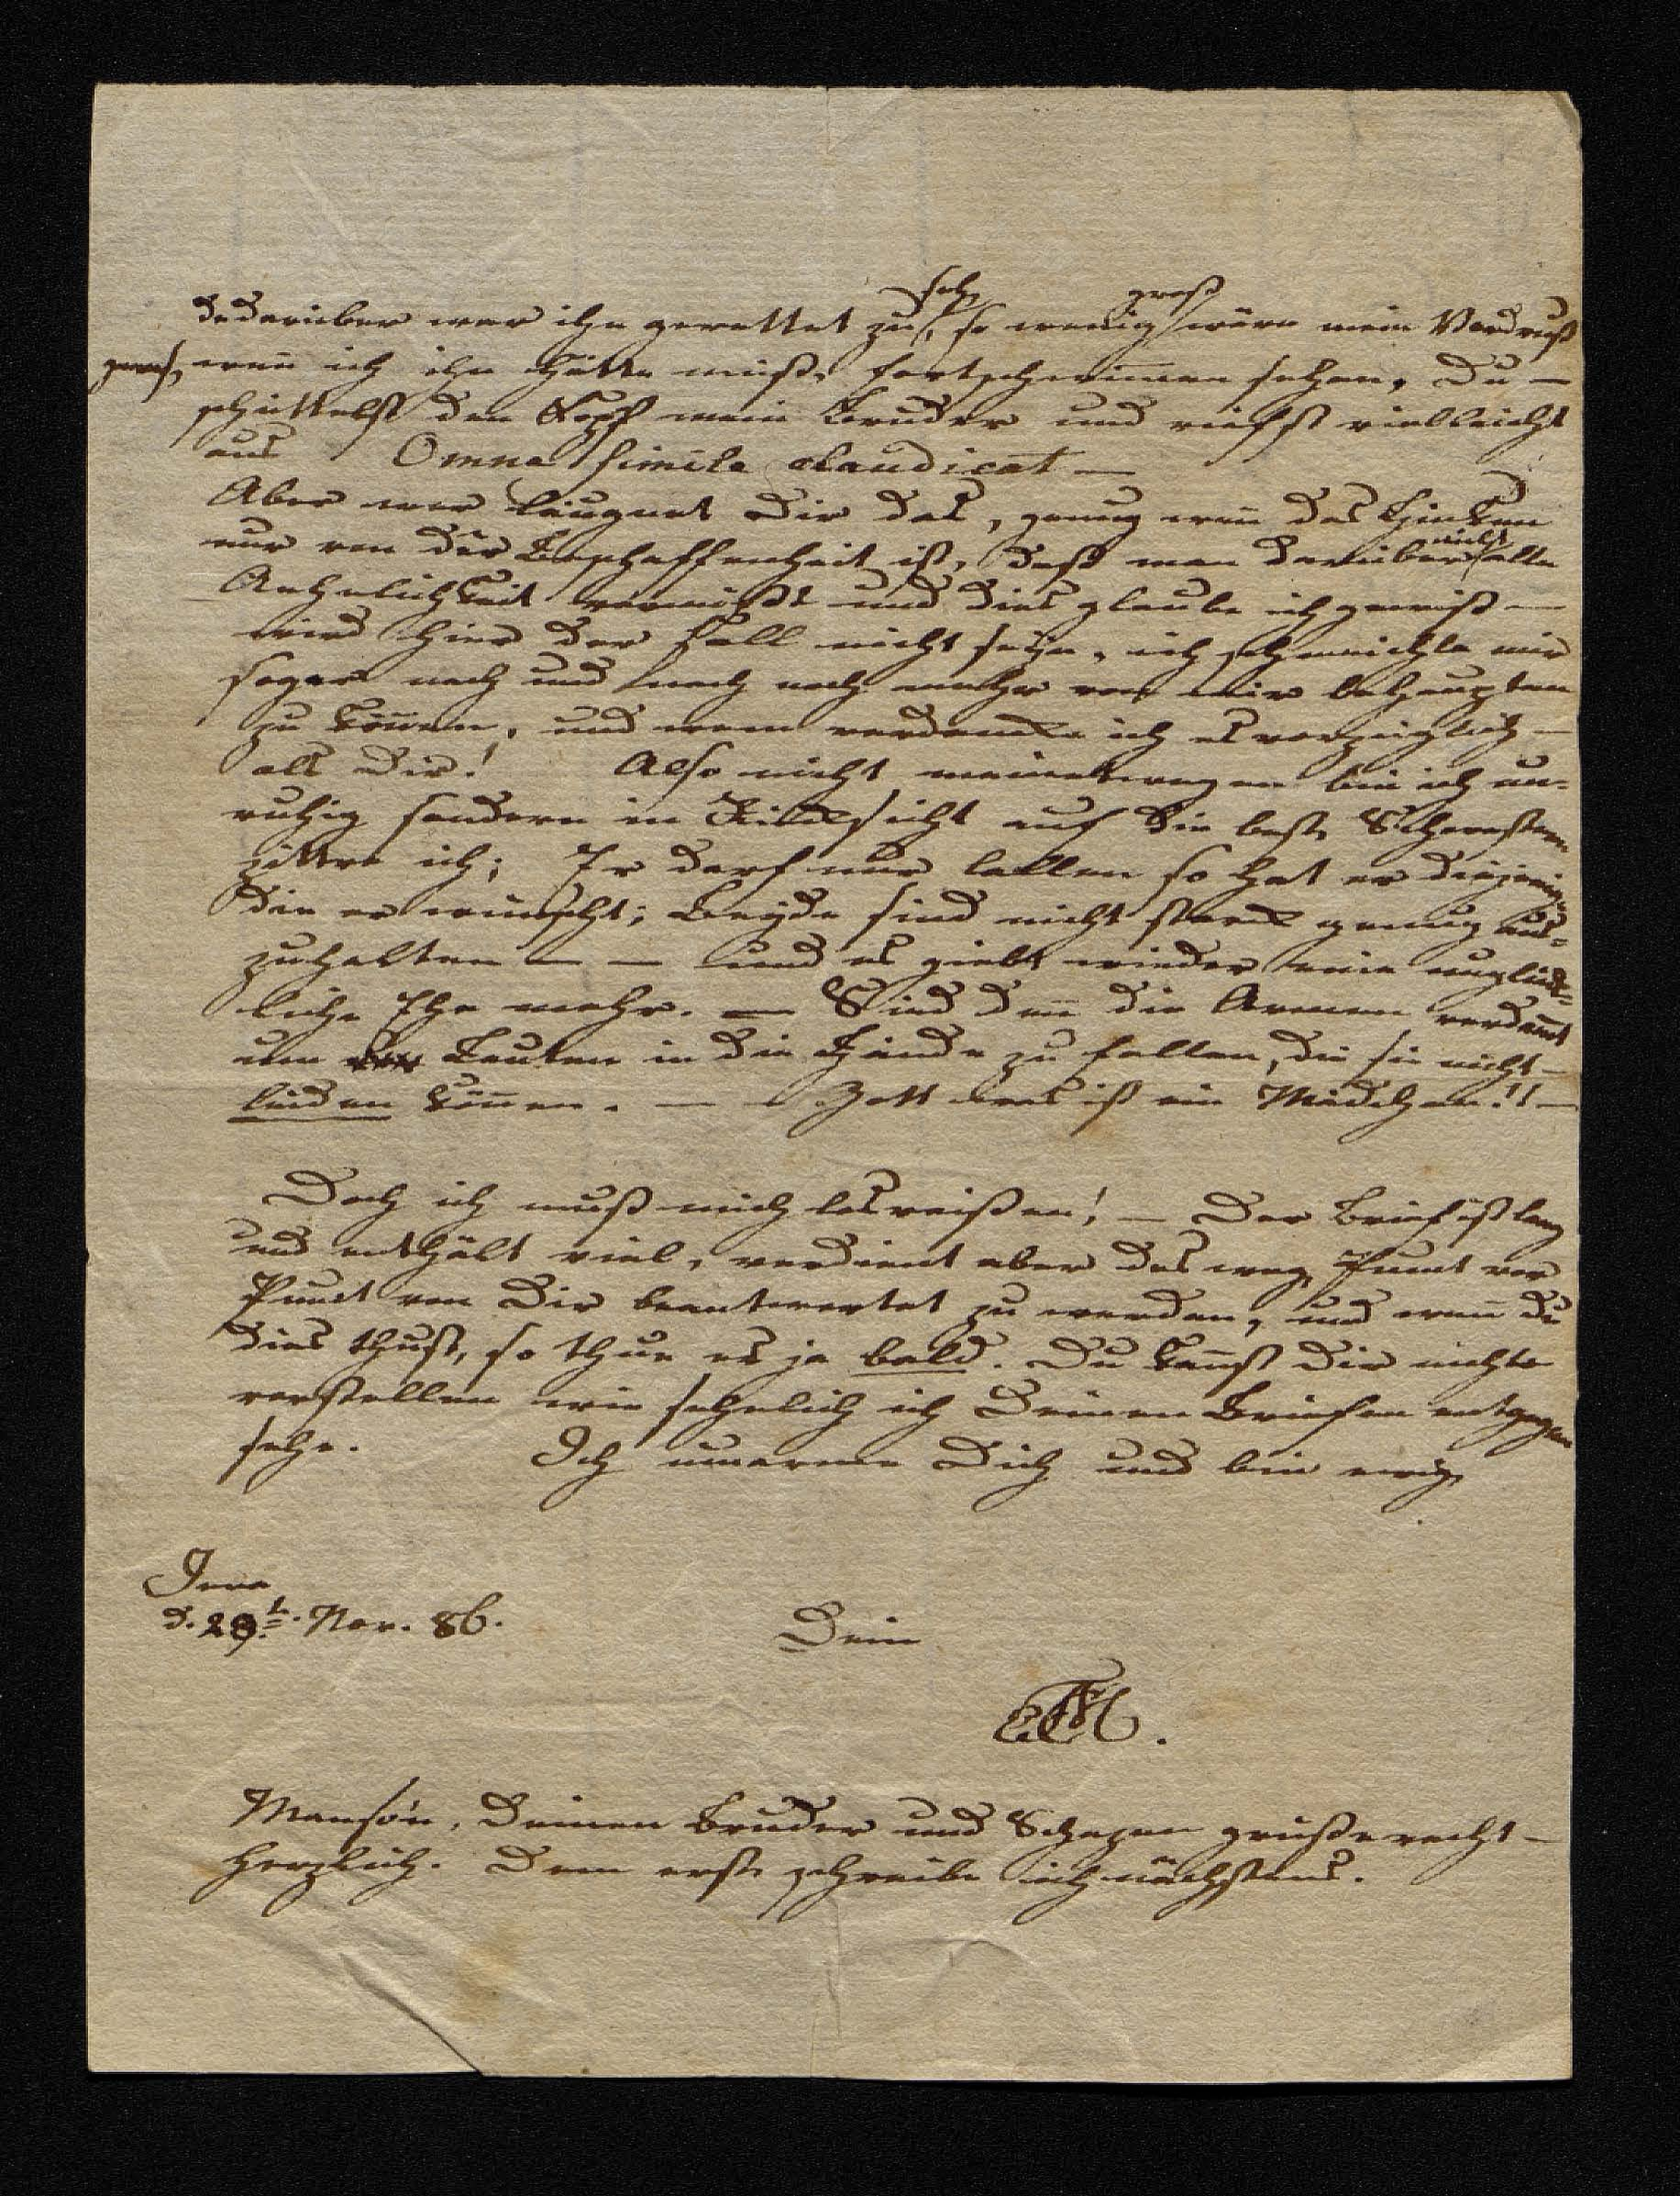 de darüber war ihn gerettet zu sehn, so wenig groß wäre mein Verdruß
gewes. wenn ich ihn hätte müß. fortschwimmen sehen. Du —
schüttelst den Kopf mein Bruder und rufst vielleicht
aus Omne simile claudicat —
Aber wer läugnet Dir das, genug wenn das Hinken
nur von der Beschaffenheit ist, daß man darüber nicht alle
Aehnlichkeit vermißt und dies glaube ich gewiß —
wird hier der Fall nicht seyn, ich schmeichle mir
sogar nach und nach noch mehr von mir behaupten
zu können, und wem verdancke ich es vorzüglich —
als Dir! Also nicht meinetwegen bin ich un-
ruhig sondern in Rücksicht auf die beste
zittre ich; Er darf nur lallen so hat er diejenige
die er wünscht; Beyde sind nicht starck genug aus-
zuhalten — — und es giebt wieder eine unglück-
liche Ehe mehr. — Sind denn die Armen verdamt
um Leuten in die Hände zu fallen, die sie nicht —
leiden können. — — Gott was ist ein Mädchen!! —
Doch ich muß mich losreißen! — Der Brief ist lang
und enthält viel, verdient aber desweg. Punct vor
Punct von Dir beantwortet zu werden, und wenn du
dies thust, so thue es ja bald. Du kannst Dir nicht
vorstellen wie sehnlich ich Deinen Briefen entgegen
sehe. Ich umarme Dich und bin ewig
Jena
d. 29t. Nov. 86.
Dein
Deinen Bruder und grüße recht —
herzlich. Dem erst. schreibe ich nächstens.